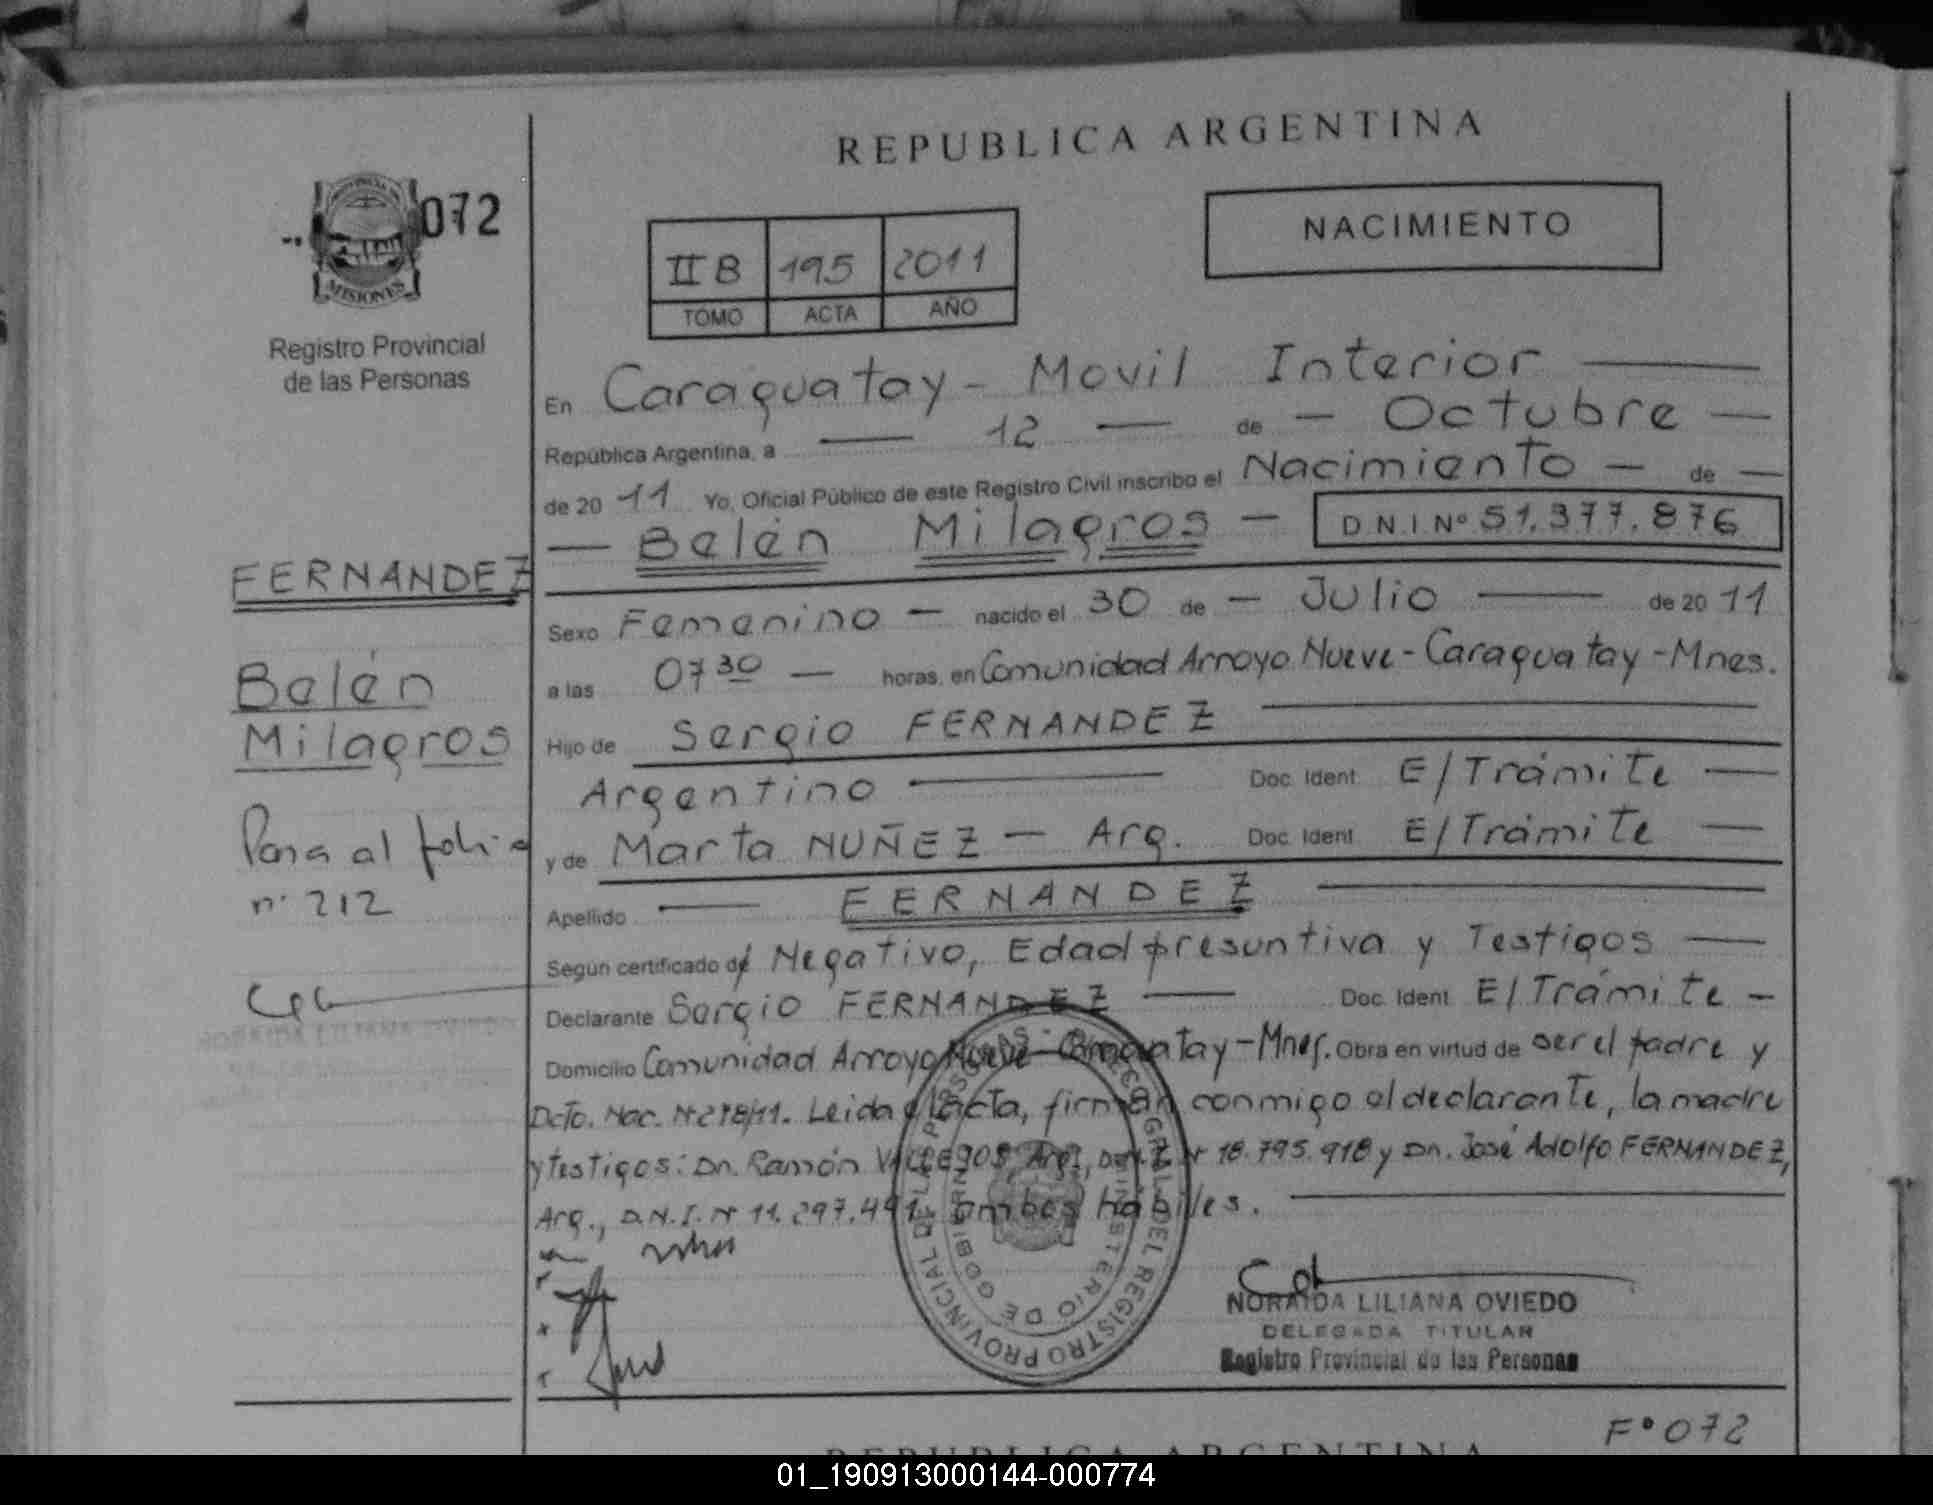 REPUBLICA ARGENTINA
072
MISIONES
Registro Provincial
de las Personas
II B 195 2011
TOMO ACTA AÑO
NACIMIENTO
En Caraguatay - Movil Interior
República Argentina, a 12 de - Octubre
de 20 11 Yo, Oficial Público de este Registro Civil inscribo el Nacimiento - de
Belén Milagros - D.N.I. Nº 51.377.876
Sexo Femenino - nacido el 30 de - Julio de 20 11
a las 07 30 horas, en Comunidad Arroyo Nueve - Caraguatay - Mnes.
Hijo de Sergio FERNANDEZ
Argentino Doc. Ident. E/Trámite
y de Marta NUÑEZ - Arg. Doc. Ident. E/Trámite
Apellido FERNANDEZ
Según certificado de Negativo, Edad presuntiva y Testigos
Declarante Sergio FERNANDEZ Doc. Ident. E/Trámite -
Domicilio Comunidad Arroyo Nueve - Caraguatay - Mnes. Obra en virtud de ser el padre y
Dcto. Nac. Nº 278/11. Leida el acta, firman conmigo el declarante, la madre
y testigos: Dn. Ramón VILLEGOS, Arg., D.N.I. Nº 18.795.918 y Dn. José Adolfo FERNANDEZ,
Arg., D.N.I. Nº 11.297.491 ambos hábiles.
FERNANDEZ
Belén
Milagros
Pasa al folio
nº 212
NORAIDA LILIANA OVIEDO
NORAIDA LILIANA OVIEDO
DELEGADA TITULAR
Registro Provincial de las Personas
GRAL. DEL REGISTRO PROVINCIAL DE LAS PERSONAS
MINISTERIO DE GOBIERNO
Fº 072
REPUBLICA ARGENTINA
01_190913000144-000774